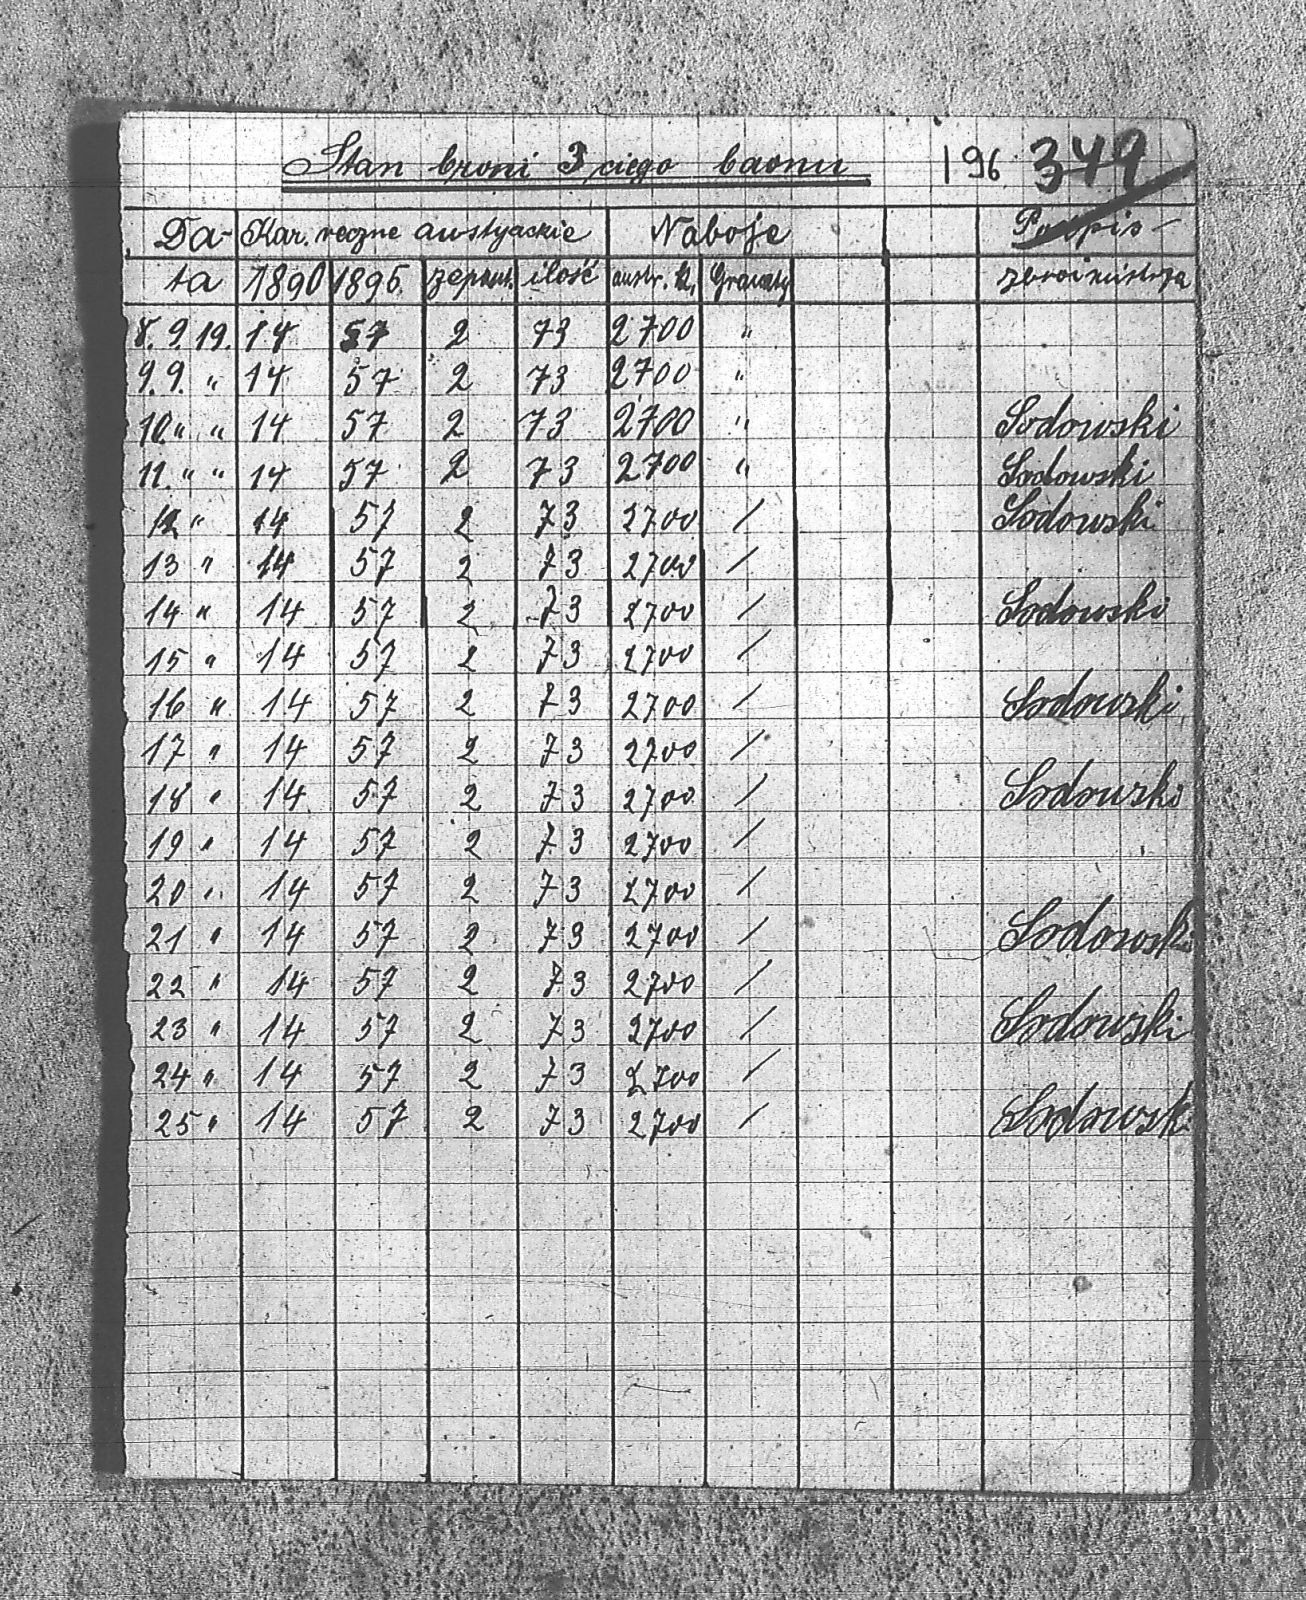 Stan broni 3 ciego baonu 196 349
Da- Kar. ręczne austyackie Naboje Podpis
ta 1890 1895. zepsut. ilość austr. Granaty zbrojmistrza
8. 9. 19. 14 57 2 73 2700 "
9. 9. " 14 57 2 73 2700 "
10. " " 14 57 2 73 2700 " Sodowski
11. " " 14 57 2 73 2700 " Sodowski
12 " 14 57 2 73 2700 / Sodowski
13 " 14 57 2 73 2700 /
14 " 14 57 2 73 2700 / Sodowski
15 " 14 57 2 73 2700 /
16 " 14 57 2 73 2700 / Sodowski
17 " 14 57 2 73 2700 /
18 " 14 57 2 73 2700 / Sodowski
19 " 14 57 2 73 2700 /
20 " 14 57 2 73 2700 /
21 " 14 57 2 73 2700 / Sodowski
22 " 14 57 2 73 2700 /
23 " 14 57 2 73 2700 / Sodowski
24 " 14 57 2 73 2700 /
25 " 14 57 2 73 2700 / Sodowski